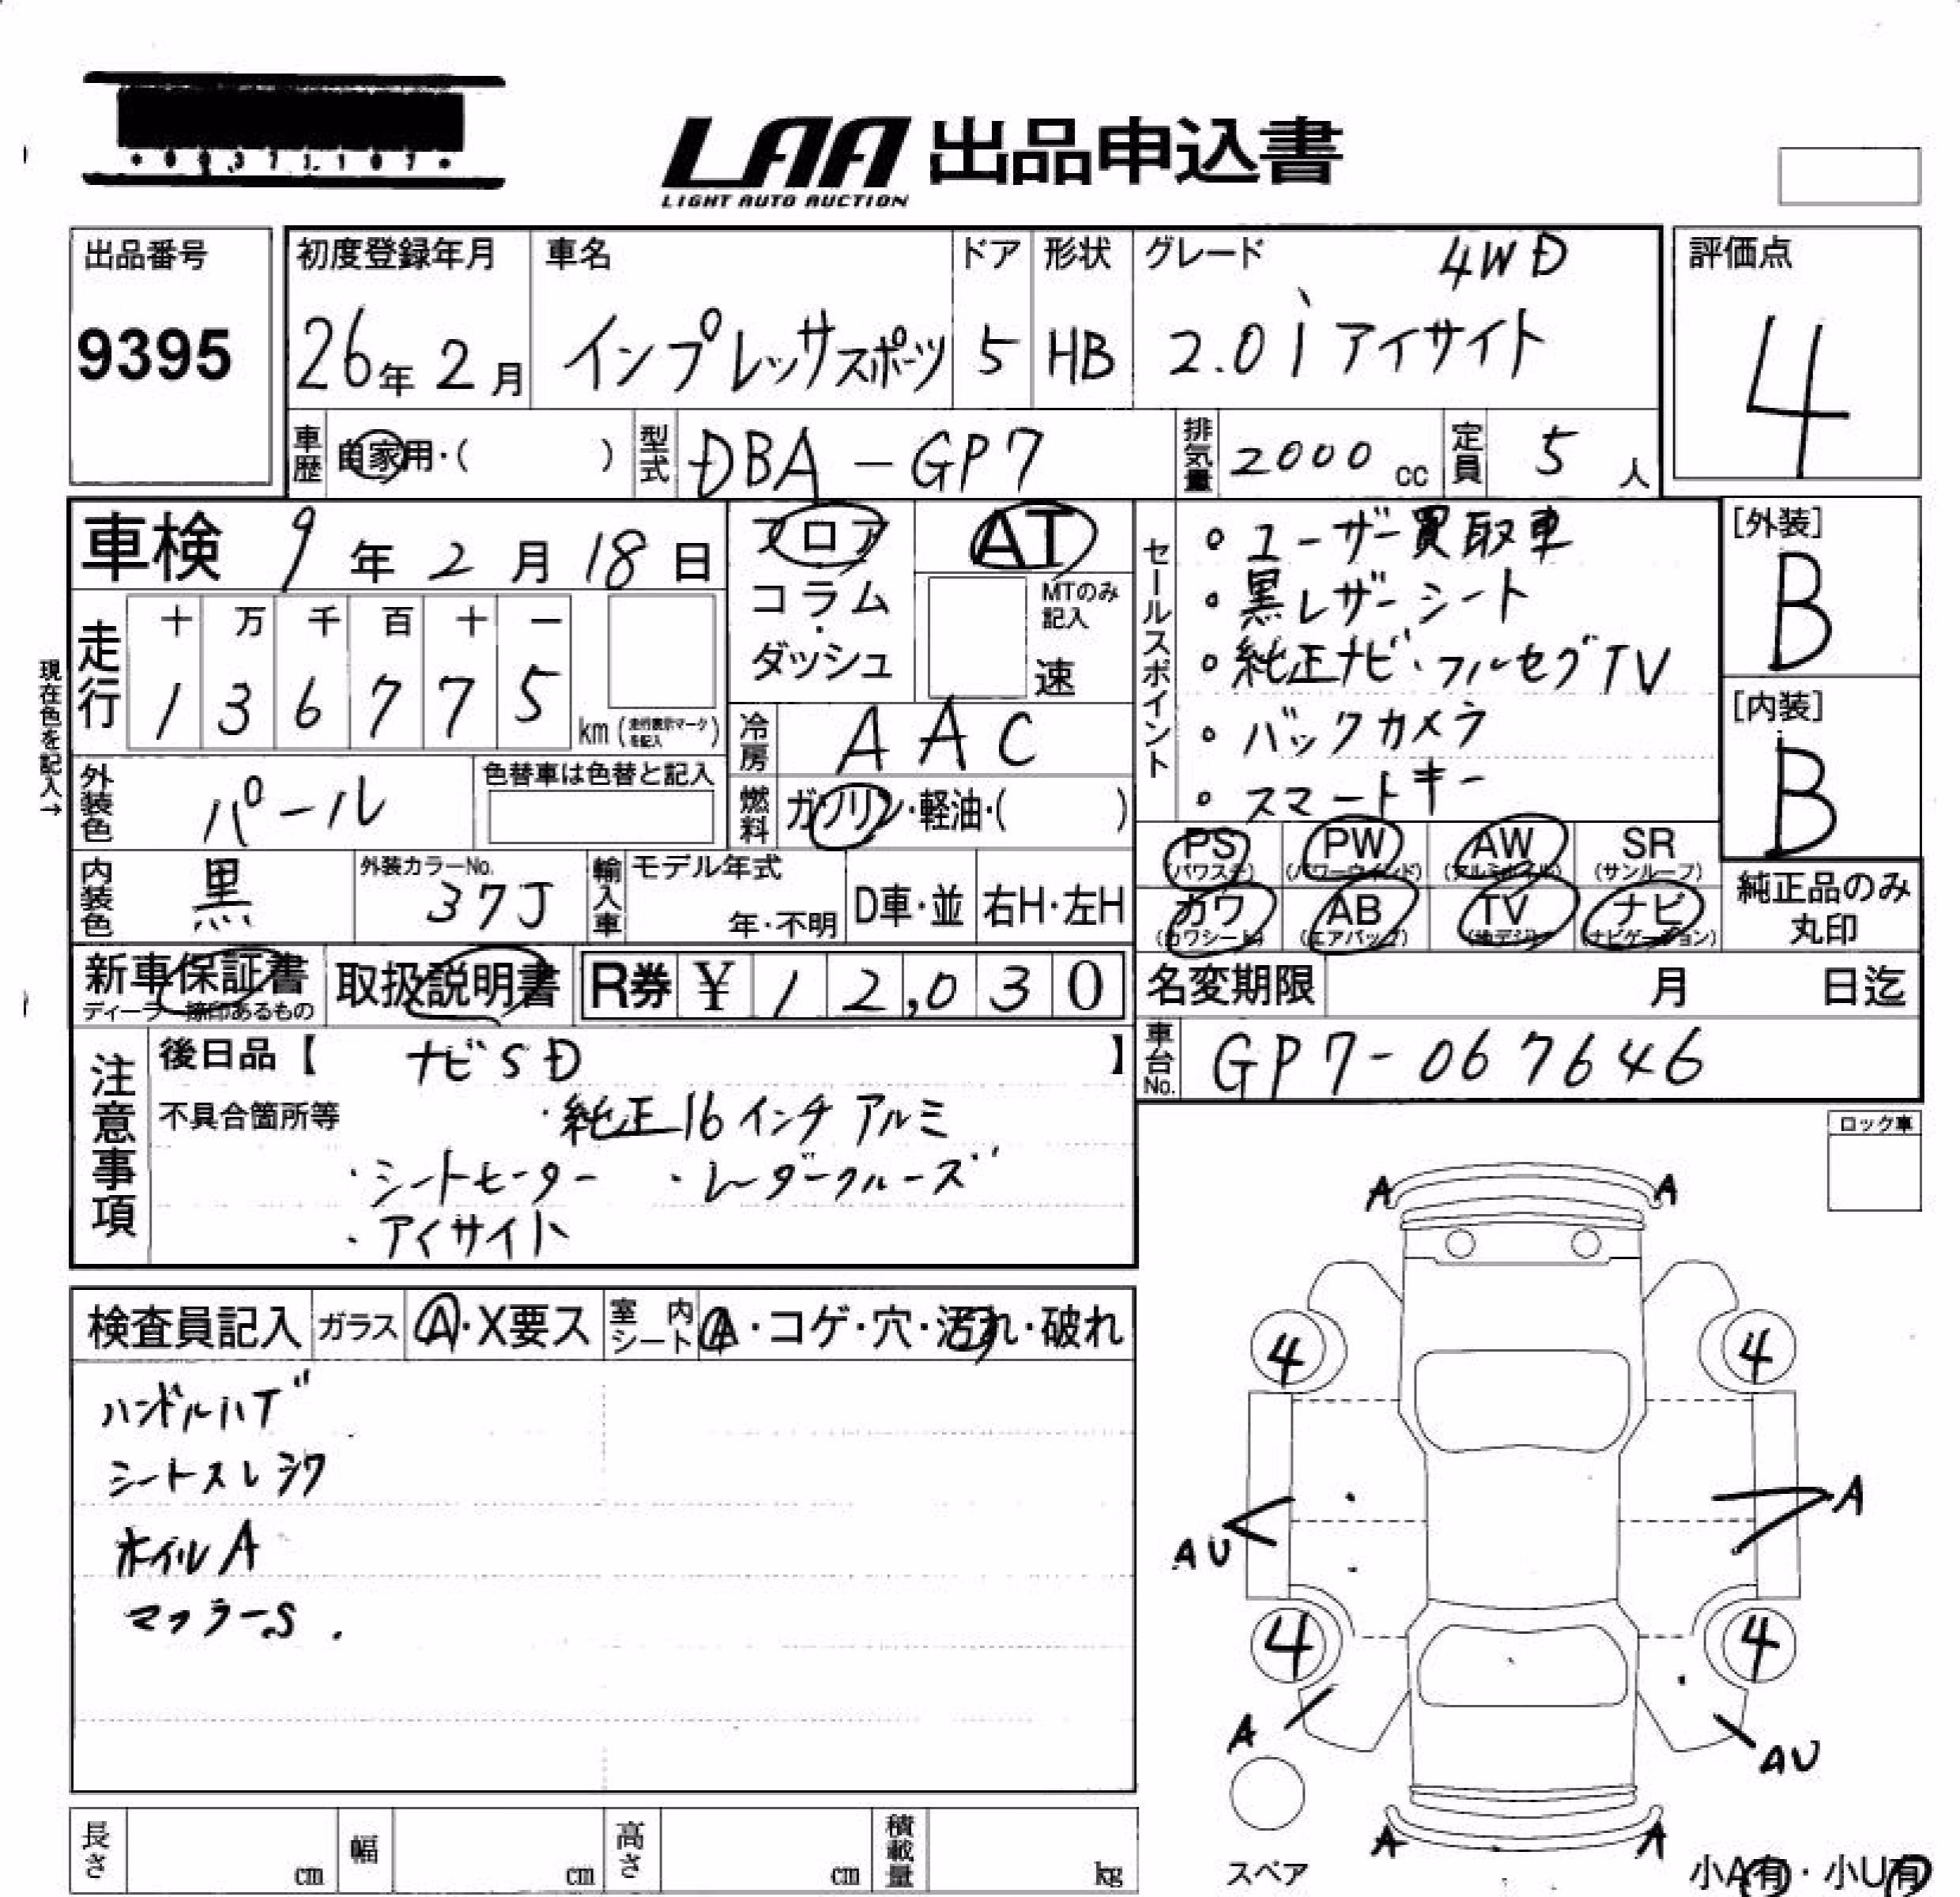 LAA 出品申込書
LIGHT AUTO AUCTION
出品番号
9395
初度登録年月
26年 2月
車名
インプレッサスポーツ
ドア
5
形状
HB
グレード 4WD
2.0i アイサイト
評価点
4
車歴 自家用・( )
型式 DBA-GP7
排気量 2000 cc
定員 5 人
車検 9年 2月 18日
フロア
コラム
・
ダッシュ
AT
MTのみ
記入
速
現在色を記入→
走行
十 万 千 百 十 一
1 3 6 7 7 5
km (走行表示マークを記入)
冷房 AAC
外装色 パール
色替車は色替と記入
燃料 ガソリン・軽油・( )
内装色 黒
外装カラーNo.
37J
輸入車 モデル年式
年・不明
D車・並
右H・左H
セールスポイント
・ユーザー買取車
・黒レザーシート
・純正ナビ・フルセグTV
・バックカメラ
・スマートキー
[外装]
B
[内装]
B
PS (パワステ) PW (パワーウインド) AW (アルミホイル) SR (サンルーフ)
カワ (カワシート) AB (エアバッグ) TV (地デジ) ナビ (ナビゲーション)
純正品のみ
丸印
新車保証書
取扱説明書
R券 ¥ 12,030
名変期限 月 日迄
車台No. GP7-067646
注意事項
後日品【 ナビSD 】
不具合箇所等 ・純正16インチアルミ
・シートヒーター ・レーダークルーズ
・アイサイト
ロック車
検査員記入 ガラス A・X要ス 室内シート A・コゲ・穴・汚れ・破れ
ハンドルハゲ
シートスレシワ
ホイルA
マフラーS.
A A
4 4
AU A
4 4
A AU
A A
スペア
小A有・小U有
長さ cm 幅 cm 高さ cm 積載量 kg